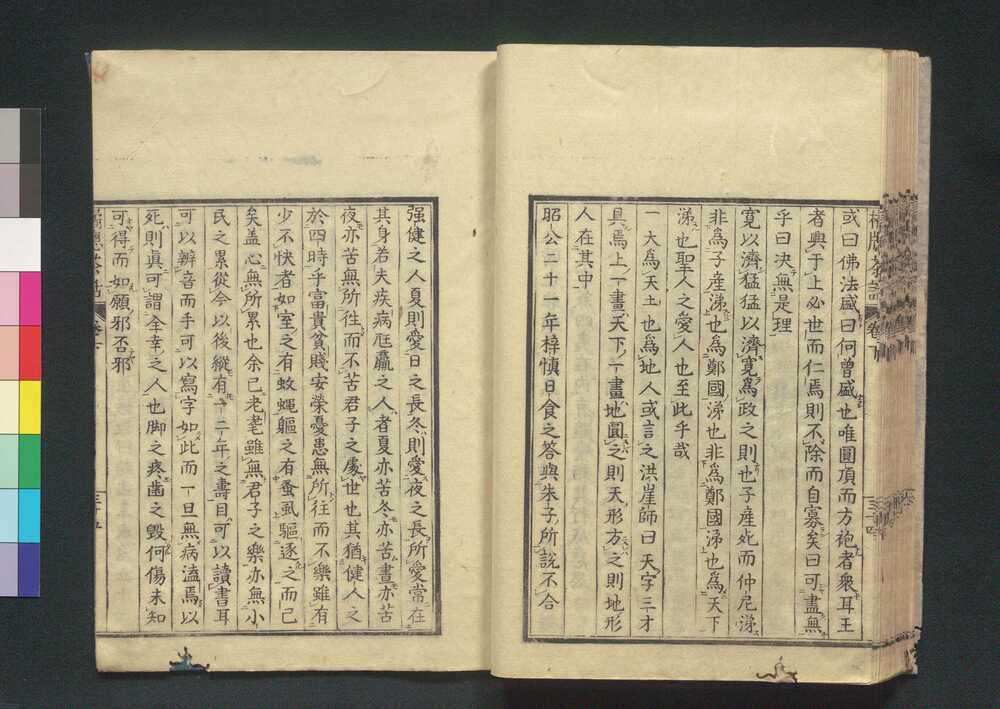 橘牕茶話 卷下
或曰佛法盛曰何曾盛也唯圓頂而方袍者衆耳王
者興于上必世而仁焉則不除而自寡矣曰可盡無
乎曰决無是理
寛以濟猛猛以濟寛爲政之則也子産死而仲尼涕
非爲子産涕也爲鄭國涕也非爲鄭國涕也爲天下
涕也聖人之愛人也至此乎哉
一大爲天土也爲地人或言之洪崖師曰天字三才
具焉上一畫天下一畫地圓之則天形方之則地形
人在其中
昭公二十一年梓愼日食之答與朱子所説不合
三十四
强健之人夏則愛日之長冬則愛夜之長所愛常在
其身若夫疾病尫羸之人者夏亦苦冬亦苦晝亦苦
夜亦苦無所徃而不苦君子之處世也其猶健人之
於四時乎富貴貧賤安榮憂患無所往而不樂雖有
少不快者如室之有蚊蝿軀之有蚤虱驅逐之而已
矣盖心無所累也余已老耄雖無君子之樂亦無小
民之累從今以後縱有十二年之壽目可以讀書耳
可以辨音而手可以寫字如此而一旦無病溘焉以
死則眞可謂全幸之人也脚之疼齒之毀何傷未知
可得而如願邪否邪
橘牕茶話 卷下
三十五